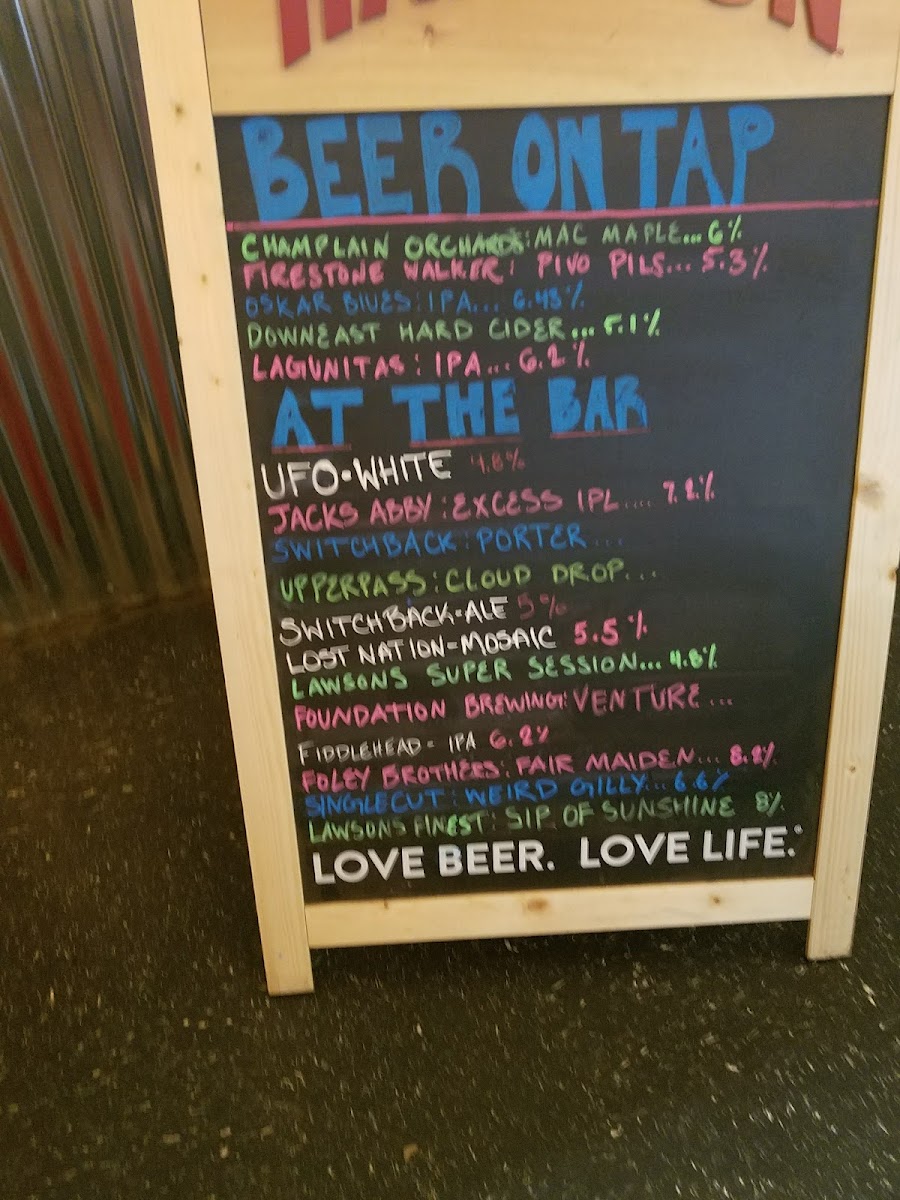 BEER ON TAP
CHAMPLAIN ORCHARDS: MAC MAPLE... 6%
FIRESTONE WALKER: PIVO PILS... 5.3%
OSKAR BLUES: IPA... 6.43%
DOWNEAST HARD CIDER... 5.1%
LAGUNITAS: IPA... 6.2%
AT THE BAR
UFO-WHITE 4.8%
JACKS ABBY: EXCESS IPL.... 7.2%
SWITCHBACK: PORTER...
UPPERPASS: CLOUD DROP...
SWITCHBACK-ALE 5%
LOST NATION-MOSAIC 5.5%
LAWSONS SUPER SESSION... 4.8%
FOUNDATION BREWING: VENTURE...
FIDDLEHEAD- IPA 6.2%
FOLEY BROTHERS: FAIR MAIDEN... 8.2%
SINGLECUT: WEIRD GILLY... 6.6%
LAWSONS FINEST: SIP OF SUNSHINE 8%
LOVE BEER. LOVE LIFE.